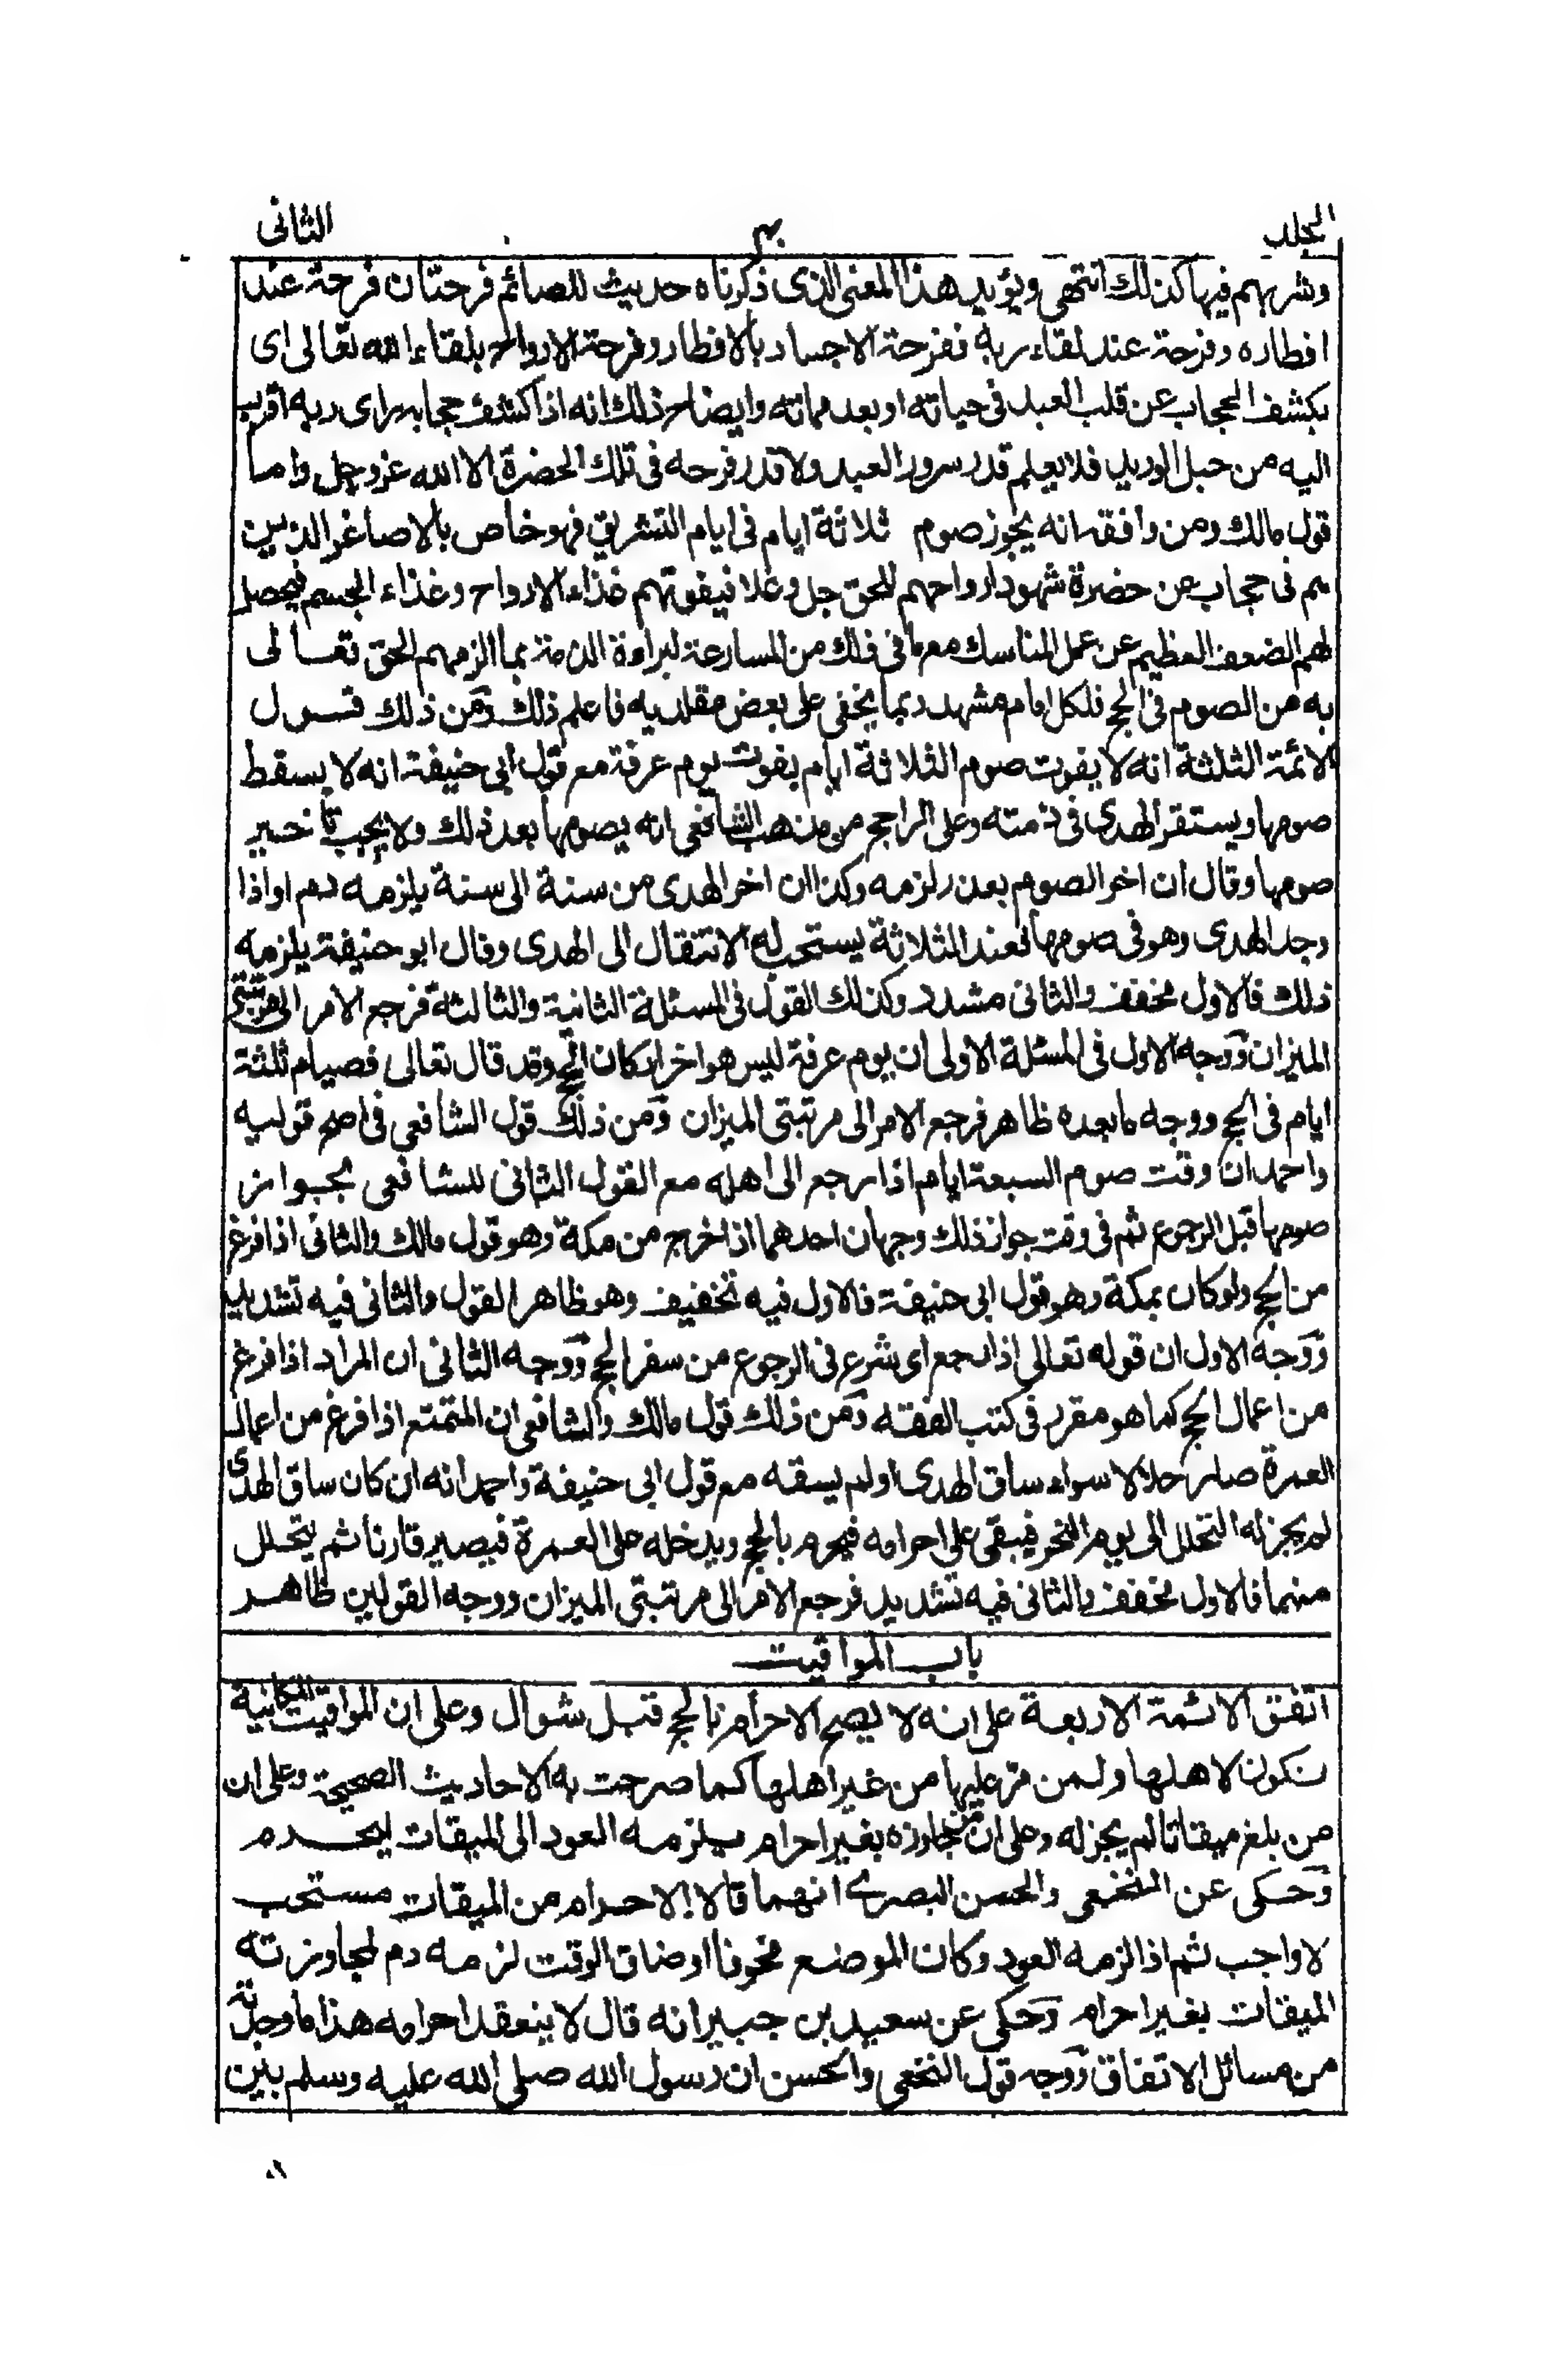 المجلد ٤٠ الثانى
وشربهم فيها كذلك انتهى ويؤيد هذا المعنى الذى ذكرناه حديث للصائم فرحتان فرحة عند
افطاره وفرحة عند لقاء ربه ففرحة الاجساد بالافطار وفرحة الارواح بلقاء الله تعالى اى
بكشف الحجاب عن قلب العبد فى حياته او بعد مماته وايضاح ذلك انه اذا كشف حجابه راى ربه اقرب
اليه من حبل الوريد فلا يعلم قدر سرور العبد ولا قدر فرحه فى تلك الحضرة الا الله عز وجل واما
قول مالك ومن وافقه انه يجوز صوم ثلاثة ايام فى ايام التشريق فهو خاص بالاصاغر الذين
هم فى حجاب عن حضرة شهود ارواحهم للحق جل وعلا فيفوتهم غذاء الارواح وغذاء الجسم فيحصل
لهم الضعف العظيم عن عمل المناسك مع ما فى ذلك من المسارعة لبراءة الذمة بما الزمهم الحق تعالى
به من الصوم فى الحج فلكل امام مشهد ربما يخفى على بعض مقلديه فاعلم ذلك ومن ذلك قول
الائمة الثلثة انه لا يفوت صوم الثلاثة ايام بفوت يوم عرفة مع قول ابى حنيفة انه لا يسقط
صومها ويستقر الهدى فى ذمته وعلى الراجح من مذهب الشافعى انه يصومها بعد ذلك ولا يجب تاخير
صومها وقال ان اخر الصوم بعذر لزمه وكذا ان اخر الهدى من سنة الى سنة يلزمه دم او اذا
وجد الهدى وهو فى صومها فعند الثلاثة يستحب له الانتقال الى الهدى وقال ابو حنيفة يلزمه
ذلك فالاول مخفف والثانى مشدد وكذلك القول فى المسئلة الثانية والثالثة فرجع الامر الى مرتبتى
الميزان ووجه الاول فى المسئلة الاولى ان يوم عرفة ليس هو اخر اركان الحج وقد قال تعالى فصيام ثلثة
ايام فى الحج ووجه ما بعده ظاهر فرجع الامر الى مرتبتى الميزان ومن ذلك قول الشافعى فى اصح قوليه
واحمد ان وقت صوم السبعة ايام اذا رجع الى اهله مع القول الثانى للشافعى بجواز
صومها قبل الرجوع ثم فى وقت جواز ذلك وجهان احدهما اذا خرج من مكة وهو قول مالك والثانى اذا فرغ
من الحج ولو كان بمكة وهو قول ابى حنيفة فالاول فيه تخفيف وهو ظاهر القول والثانى فيه تشديد
ووجه الاول ان قوله تعالى اذا رجع اى شرع فى الرجوع من سفر الحج ووجه الثانى ان المراد اذا فرغ
من اعمال الحج كما هو مقرر فى كتب الفقه ومن ذلك قول مالك والشافعى ان المتمتع اذا فرغ من اعمال
العمرة صار حلالا سواء ساق الهدى او لم يسقه مع قول ابى حنيفة واحمد انه ان كان ساق الهدى
لم يجز له التحلل الى يوم النحر فيبقى على احرامه فيحرم بالحج ويدخله على العمرة فيصير قارنا ثم يتحلل
منهما فالاول مخفف والثانى فيه تشديد فرجع الامر الى مرتبتى الميزان ووجه القولين ظاهر
باب المواقيت
اتفق الائمة الاربعة على انه لا يصح الاحرام بالحج قبل شوال وعلى ان المواقيت المكانية
تكون لاهلها ولمن مر عليها من غير اهلها كما صرحت به الاحاديث الصحيحة وعلى ان
من بلغ ميقاتا لم يجز له وعلى ان من تجاوزه بغير احرام يلزمه العود الى الميقات ليحرم
وحكى عن النخعى والحسن البصرى انهما قالا الاحرام من الميقات مستحب
لا واجب ثم اذا لزمه العود وكان الموضع مخوفا او ضاق الوقت لزمه دم لمجاوزته
الميقات بغير احرام وحكى عن سعيد بن جبير انه قال لا ينعقد احرامه هذا ما وجدته
من مسائل الاتفاق ووجه قول النخعى والحسن ان رسول الله صلى الله عليه وسلم بين